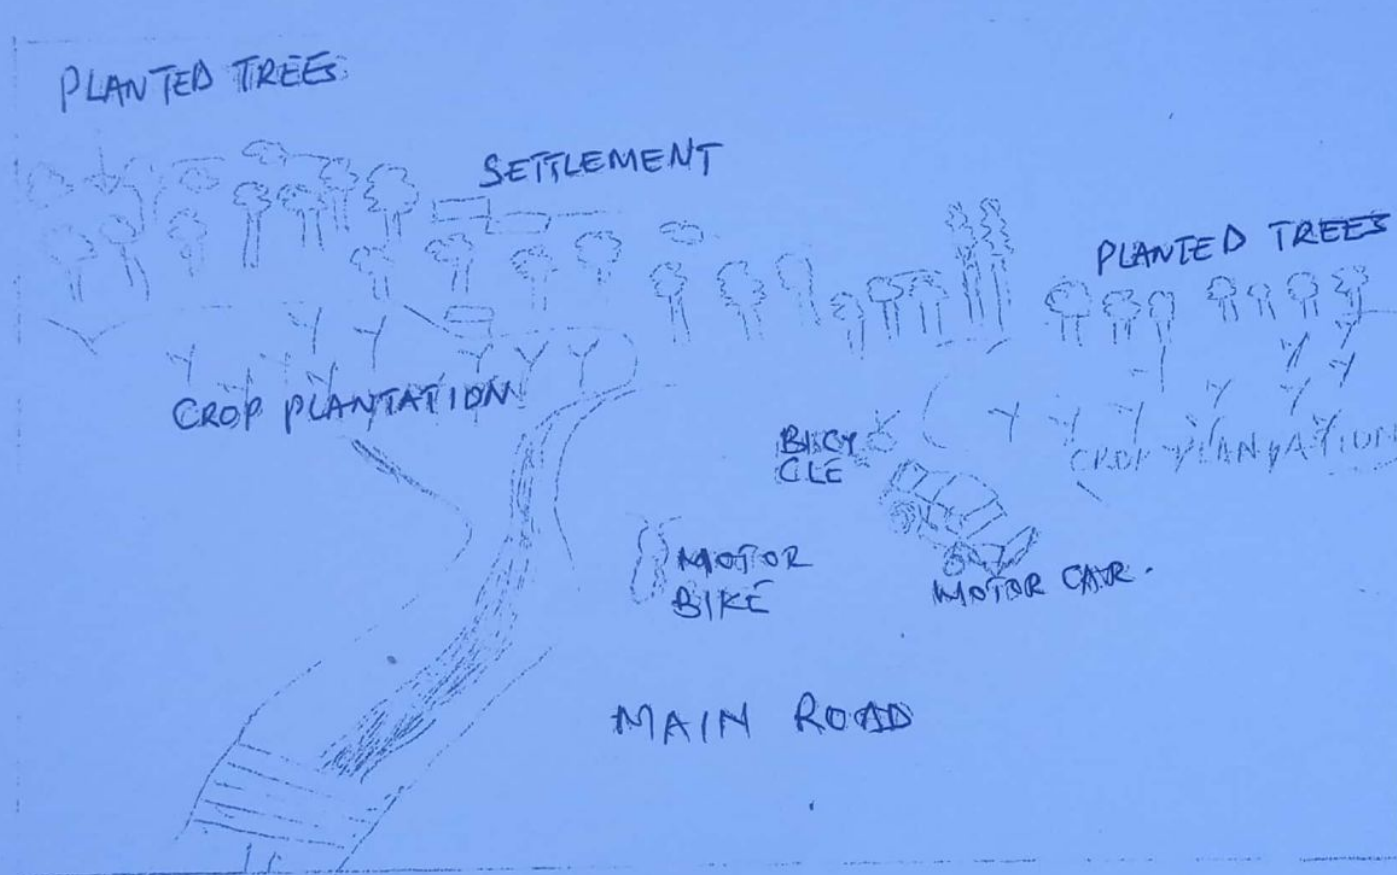 PLANTED TREES
SETTLEMENT
PLANTED TREES
CROP PLANTATION
CROP PLANTATION
BICY
CLE
MOTOR
BIKE
MOTOR CAR.
MAIN ROAD